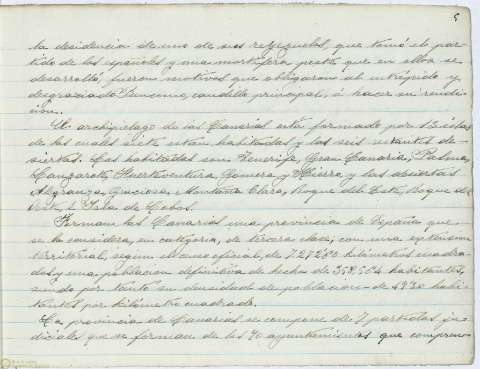 5
la desidencia de uno de sus reyezuelos, que tomó el par-
tido de los españoles y una mortífera peste que en ellos se
desarrolló, fueron motivos que obligaron al intrépido y
desgraciado Bencomo, caudillo principal, á hacer su rendi-
ción.
El archipiélago de las Canarias está formado por 13 islas
de las cuales siete están habitadas y las seis restantes de-
siertas. Las habitadas son Tenerife, Gran Canaria, Palma,
Lanzarote, Fuerteventura, Gomera y Hierro y las desiertas
Alegranza, Graciosa, Montaña Clara, Roque del Este, Roque del
Oeste, é Isla de Lobos.
Forman las Canarias una provincia de España que
se la considera, en categoría, de tercera clase; con una extensión
territorial, según el censo oficial, de 7.272,60 kilómetros cuadra-
dos y una población definitiva de hecho de 358,564 habitantes,
siendo por tanto su densidad de población de 49,30 habi-
tantes por kilómetro cuadrado.
La provincia de Canarias se compone de 7 partidos ju-
diciales que se forman de los 90 ayuntamientos que compren-